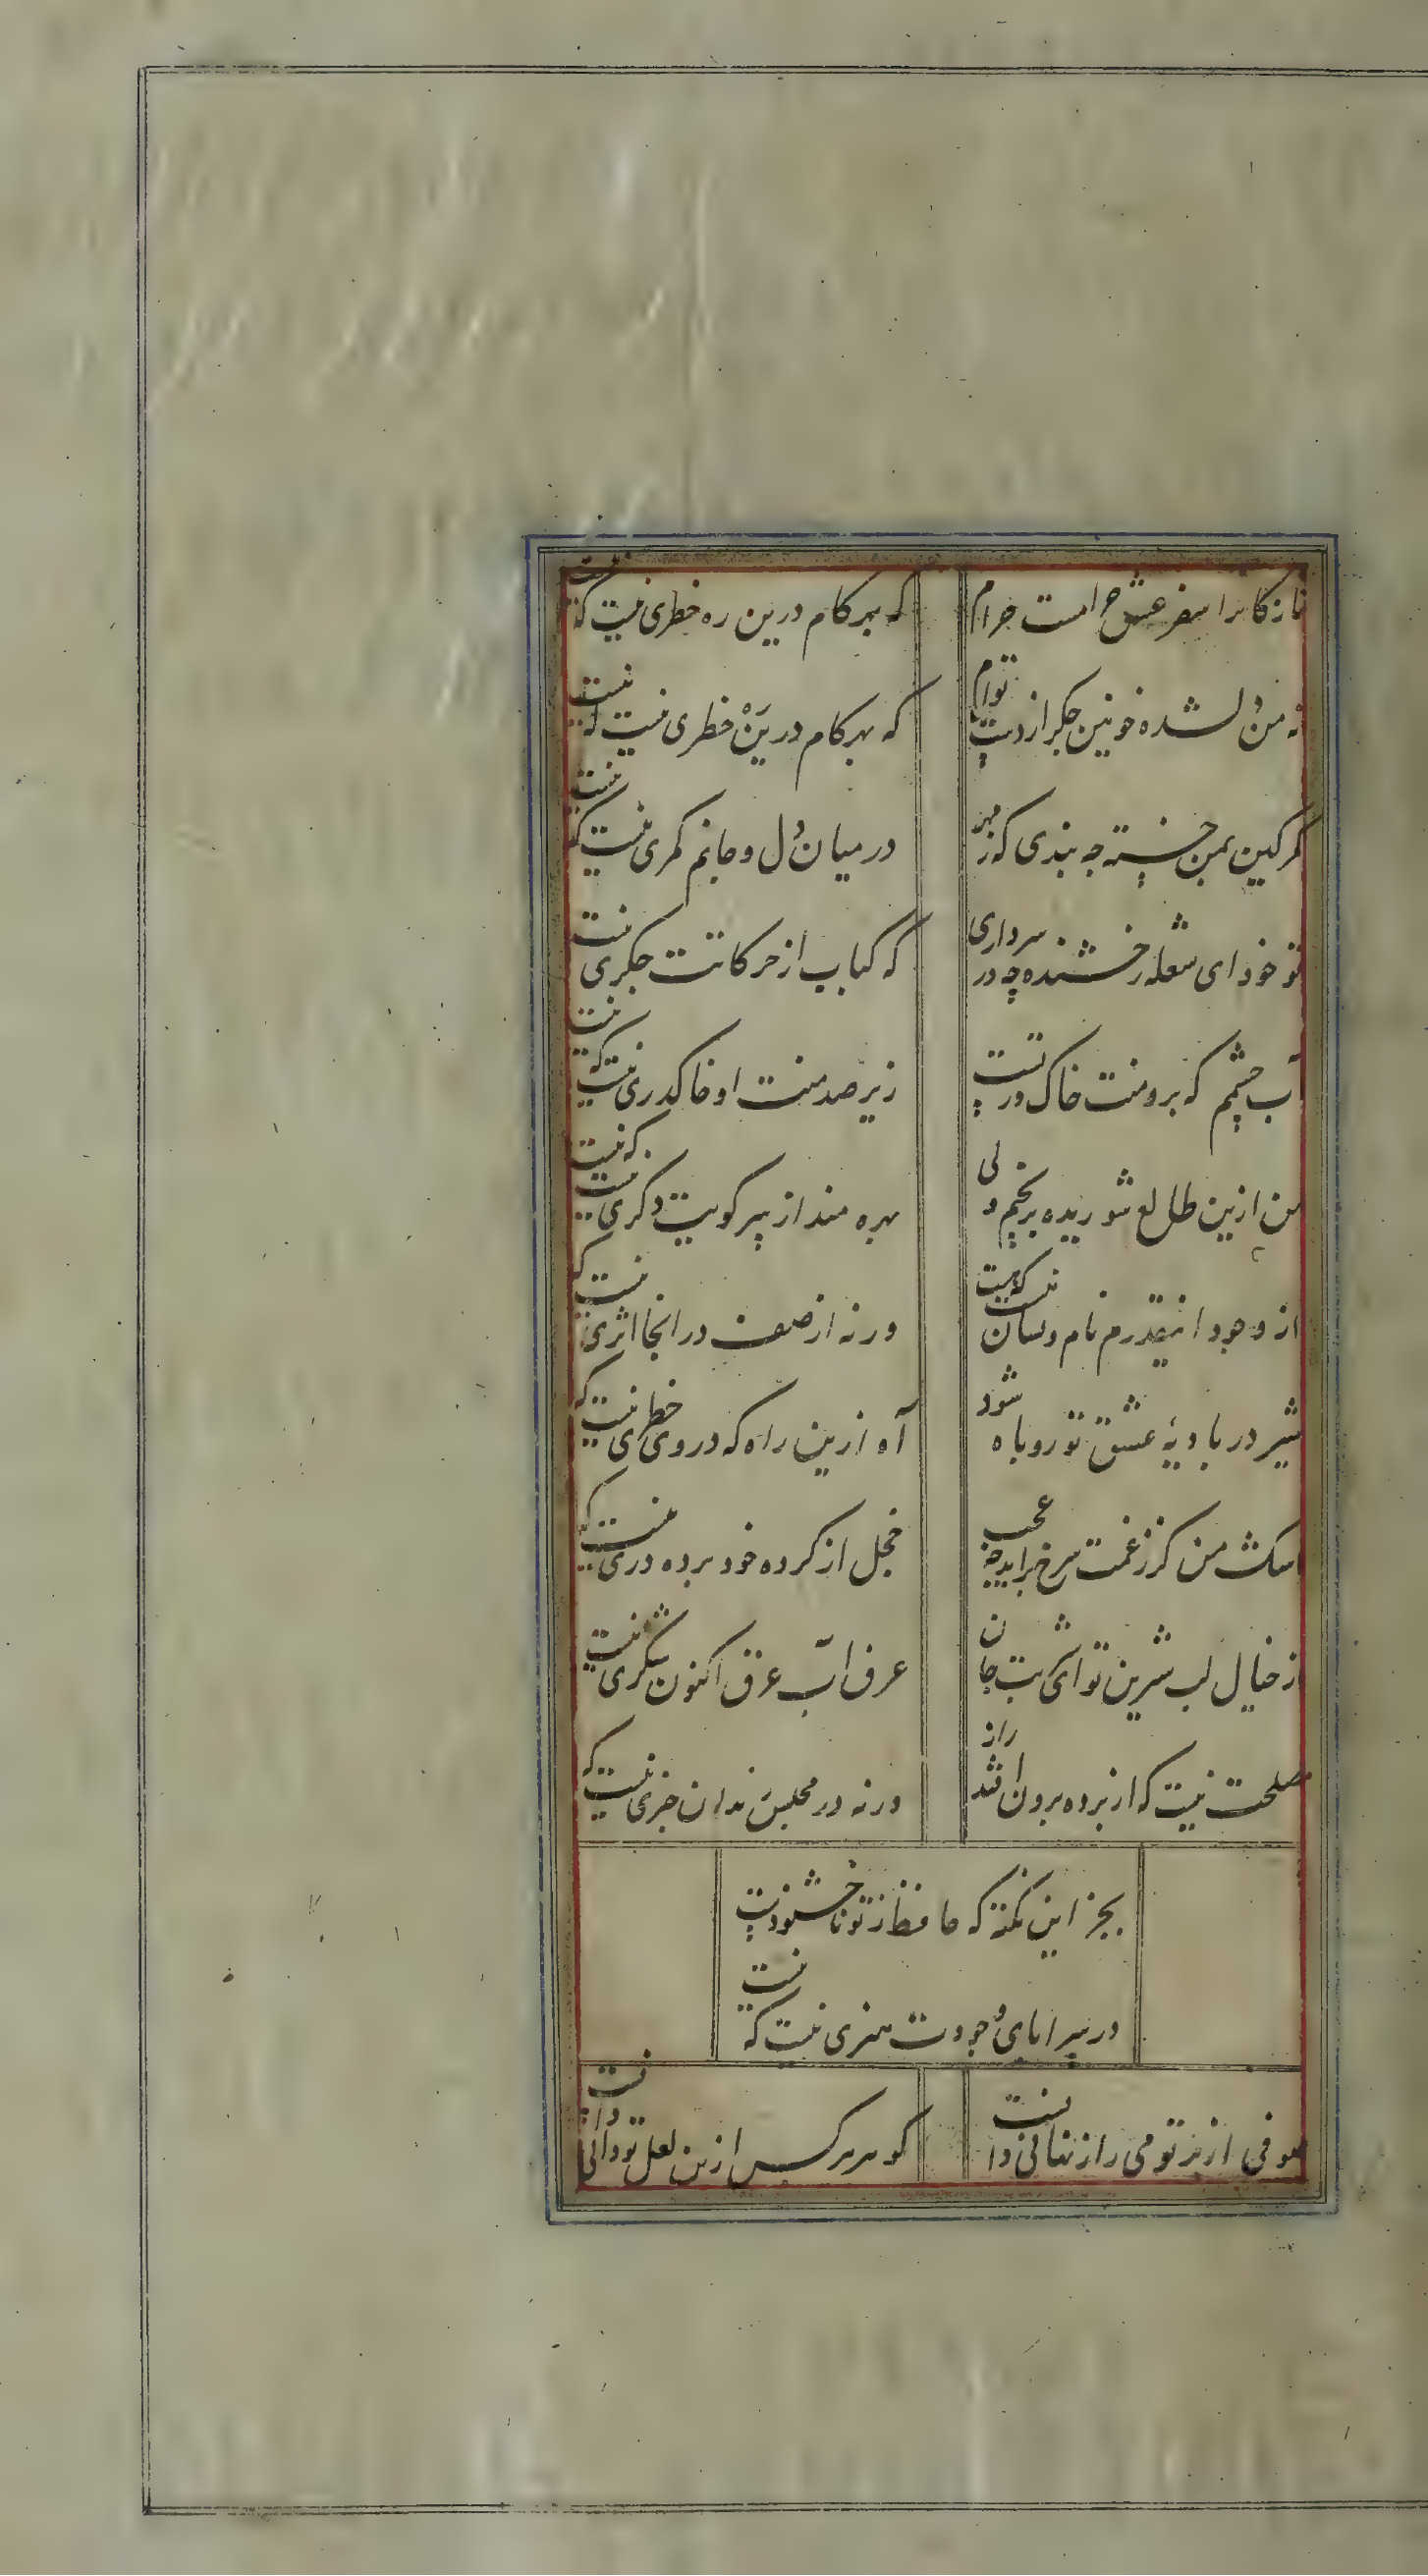 نازکانرا سفر عشق حرامست حرام
که بهر کام درین ره خطری نیست که نیست
نه من دلشده خونین جگر از دست توام
که بهر کام درین ره خطری نیست که نیست
کمر کین بمن خسته چه بندی که ز مهر
در میان دل و جانم کمری نیست که نیست
تو خود ای شعله رخشنده چه در سر داری
که کباب از حرکاتت جگری نیست
آب چشمم که برو منت خاک در تست
زیر صد منت او خاکدری نیست که نیست
من ازین طالع شوریده برنجم ولی
بهره مند از سر کویت دگری نیست که نیست
از وجود اینقدرم نام و نشان هست که نیست
ورنه از ضعف در انجا اثری نیست که
شیر در بادیهٔ عشق تو روباه شود
آه ازین راه که در وی خطری نیست که
اشک من کز غمت سرخ برآید چه عجب
خجل از کرده خود پرده دری نیست که
از خیال لب شیرین تو ای بت جان
عرق آب عرق اکنون شکری نیست
مصلحت نیست که از پرده برون افتد راز
ورنه در مجلس رندان خبری نیست که
بجز این نکته که حافظ ز تو ناخشنودست
در سراپای وجودت هنری نیست که نیست
صوفی از پرتو می راز نهانی دانست
گوهر هر کس ازین لعل توانی دانست